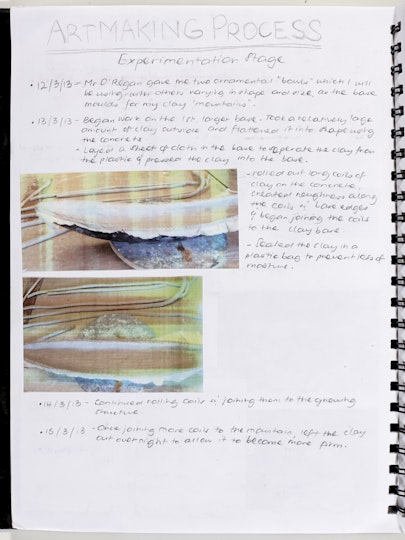 ARTMAKING PROCESS
Experimentation Stage
• 12/3/13 - Mr O'Regan gave me two ornamental "bowls" which I will
be using, with others varying in shape and size, as the base
moulds for my clay 'mountains'.
• 13/3/13 - Began work on the 1st, larger base. Took a relatively large
amount of clay outside and flattened it into shape using
the concrete
- Layed a sheet of cloth in the base to separate the clay from
the plastic & pressed the clay into the base.
- rolled out long coils of
clay on the concrete,
created roughness along
the coils n' base edges
& began joining the coils
to the clay base
- Sealed the clay in a
plastic bag to prevent loss of
moisture.
• 14/3/13 - Continued rolling coils n' joining them to the growing
structure
• 15/3/13 - Once joining more coils to the mountain, left the clay
out overnight to allow it to become more firm.